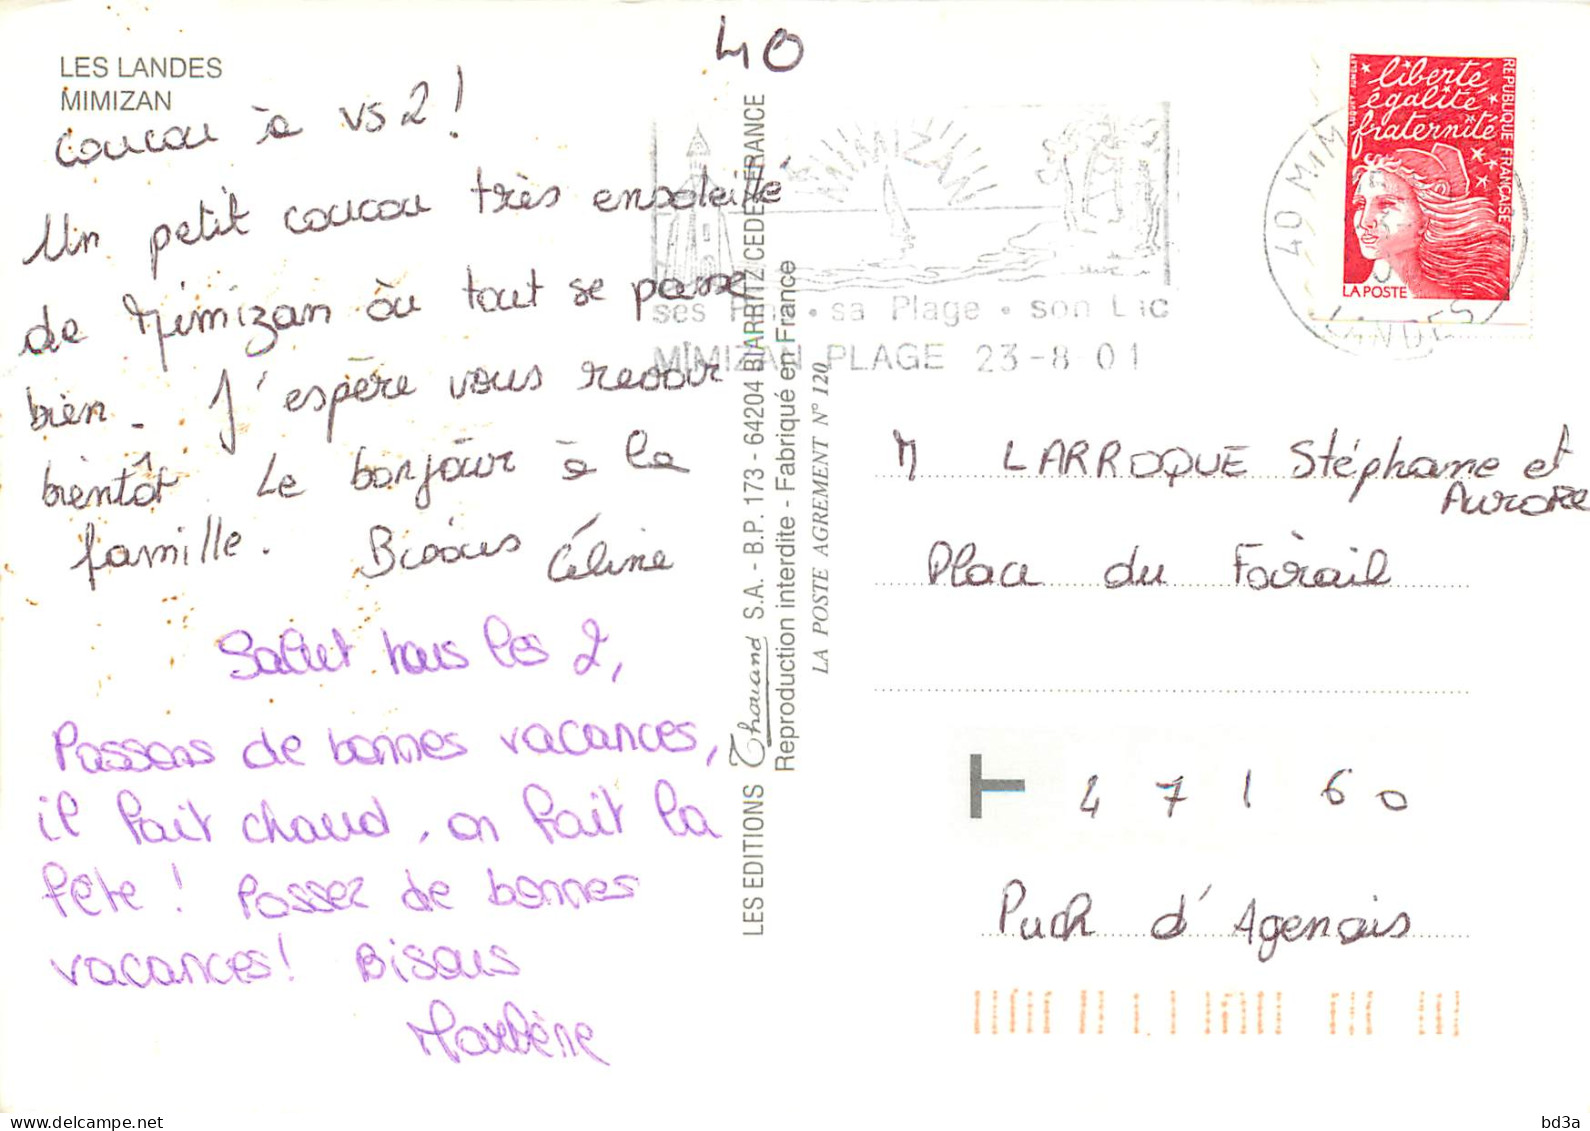 LES LANDES
MIMIZAN
40
coucou à vs 2 !
Un petit coucou très ensoleillé
de Mimizan où tout se passe
bien. J'espère vous revoir
bientôt Le bonjour à la
famille. Bisous Céline
Salut tous les 2,
Passons de bonnes vacances,
il fait chaud, on fait la
fête ! Passez de bonnes
vacances ! Bisous
Marlène
LES EDITIONS Thouand S.A. - B.P. 173 - 64204 BIARRITZ CEDEX FRANCE
Reproduction interdite - Fabriqué en France
LA POSTE AGREMENT N° 120
MIMIZAN
ses • sa Plage • son Lac
MIMIZAN PLAGE 23-8-01
40 MIM
LANDES
liberté
égalité
fraternité
REPUBLIQUE FRANÇAISE
LA POSTE
M LARROQUE Stéphane et
Aurore
Place du Foirail
T 47160
Puch d'Agenais
bd3a